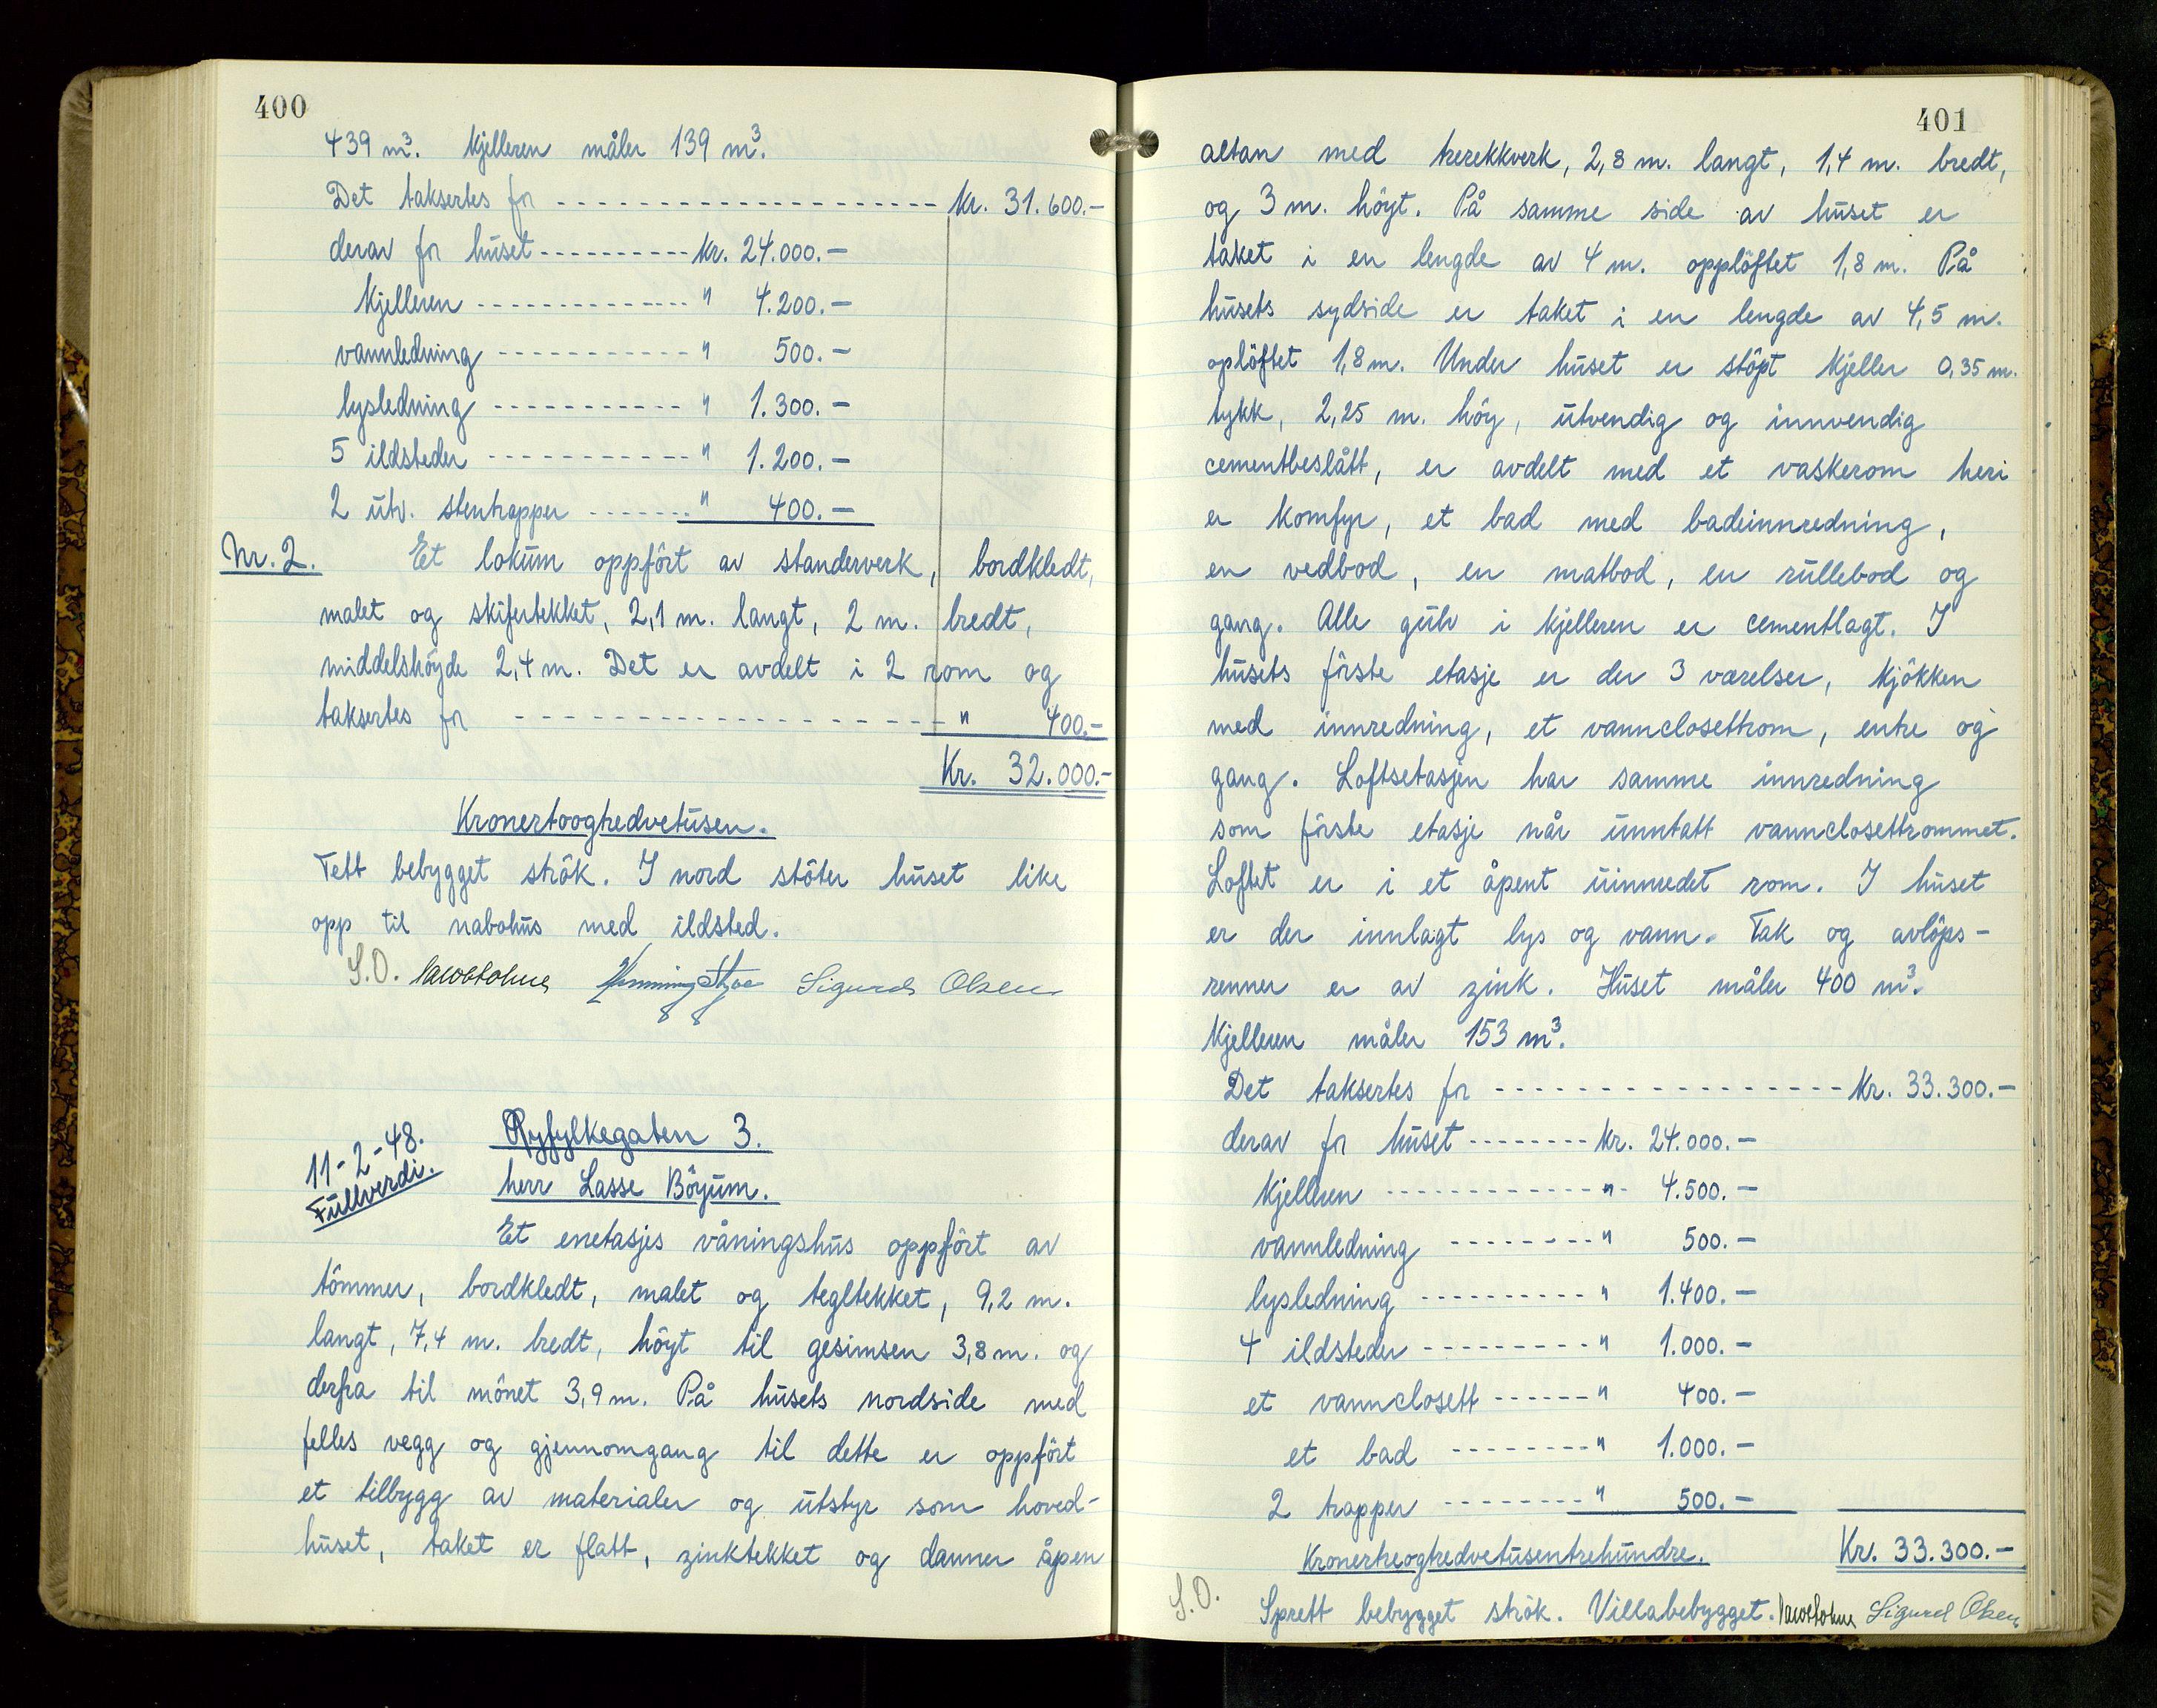 400
439 m³. Kjelleren måler 139 m³.
Det taksertes for -------------------- Kr. 31.600.-
derav for huset ---------- Kr. 24.000.-
Kjelleren ------------- " 4.200.-
vannledning ----------- " 500.-
lysledning ----------- " 1.300.-
5 ildsteder ----------- " 1.200.-
2 utv. stentrapper ------- " 400.-
Nr. 2. Et lokum oppfört av standerverk, bordkledt,
malet og skifertekket, 2,1 m. langt, 2 m. bredt,
middelshöyde 2,4 m. Det er avdelt i 2 rom og
taksertes for ------------------- " 400.-
Kr. 32.000.-
Kronertoogtredvetusen.
Tett bebygget strök. I nord stöter huset like
opp til nabohus med ildsted.
S.O. Sigurd Olsen
11-2-48.
Fullverdi.
Ryfylkegaten 3.
herr Lasse Böyum.
Et enetasjes våningshus oppfört av
tömmer, bordkledt, malet og tegltekket, 9,2 m.
langt, 7,4 m. bredt, höyt til gesimsen 3,8 m. og
derfra til mönet 3,9 m. På husets nordside med
felles vegg og gjennomgang til dette er oppfört
et tilbygg av materialer og utstyr som hoved-
huset, taket er flatt, zinktekket og danner åpen
401
altan med trerekkverk, 2,8 m. langt, 1,4 m. bredt,
og 3 m. höyt. På samme side av huset er
taket i en lengde av 4 m. opplöftet 1,8 m. På
husets sydside er taket i en lengde av 4,5 m.
oplöftet 1,8 m. Under huset er stöpt kjeller 0,35 m.
tykk, 2,25 m. höy, utvendig og innvendig
cementbeslått, er avdelt med et vaskerom heri
er komfyr, et bad med badeinnredning,
en vedbod, en matbod, en rullebod og
gang. Alle gulv i kjelleren er cementlagt. I
husets förste etasje er der 3 værelser, kjökken
med innredning, et vannclosettrom, entre og
gang. Loftsetasjen har samme innredning
som förste etasje når unntatt vannclosettrommet.
Loftet er i et åpent uinnredet rom. I huset
er der innlagt lys og vann. Tak og avlöps-
renner er av zink. Huset måler 400 m³.
Kjelleren måler 153 m³.
Det taksertes for ----------------- Kr. 33.300.-
derav for huset -------- Kr. 24.000.-
Kjelleren -------------- " 4.500.-
vannledning -------- " 500.-
lysledning ---------- " 1.400.-
4 ildsteder ---------- " 1.000.-
et vannclosett ------ " 400.-
et bad -------- " 1.000.-
2 trapper -------- " 500.-
Kronertreogtredvetusentrehundre. Kr. 33.300.-
S.O. Sprett bebygget strök. Villabebygget. Sigurd Olsen